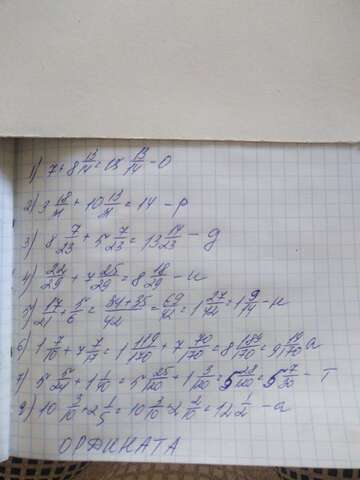 1) 7+8 13/14=15 13/14-О
2) 3 18/21+10 13/21=14-р
3) 8 7/23+5 7/23=13 14/23-д
4) 22/29+7 25/29=8 18/29-и
5) 17/21+5/6=34+35/42=69/42=1 27/42=1 9/14-н
6) 1 7/10+7 7/17=1 119/170+7 70/170=8 189/170=9 19/170 а
7) 5 5/24+1 1/40=5 25/120+1 3/120=5 28/120=5 7/30-т
9) 10 3/10+2 1/5=10 3/10+2 2/10=12 1/2-а
ОРДИНАТА